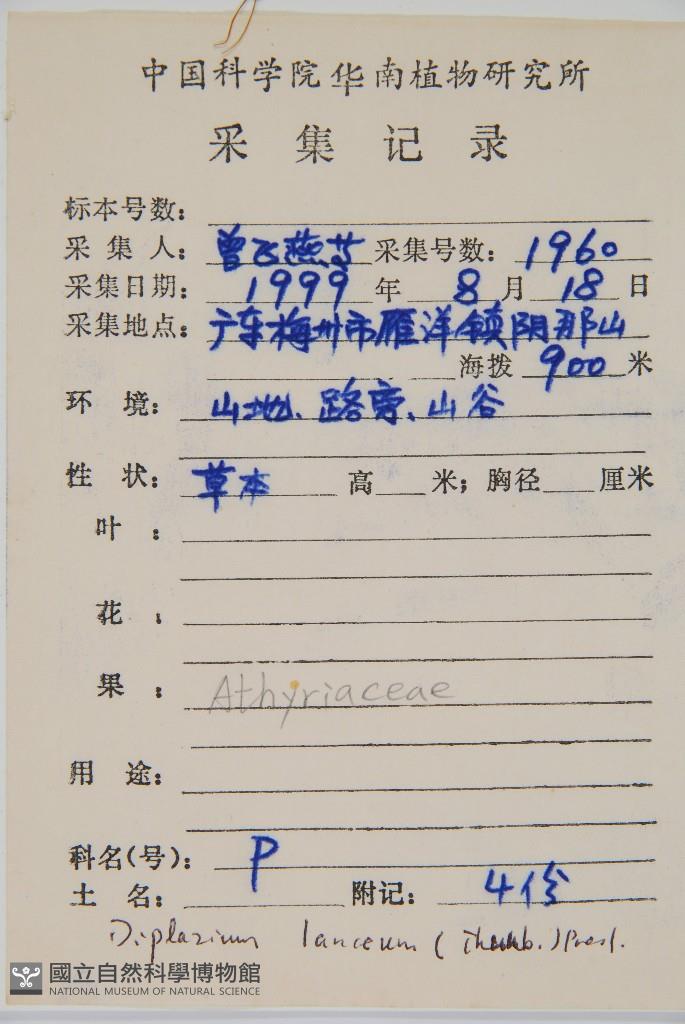 中国科学院华南植物研究所
采集记录
标本号数：
采集人：曾飞燕等 采集号数：1960
采集日期：1999年8月18日
采集地点：广东梅州市雁洋镇阴那山
海拨900米
环境：山地、路旁、山谷
性状：草本 高 米；胸径 厘米
叶：
花：
果：Athyriaceae
用途：
科名(号)：P
土名： 附记：4份
Diplazium lanceum (Thunb.) Presl.
國立自然科學博物館
NATIONAL MUSEUM OF NATURAL SCIENCE